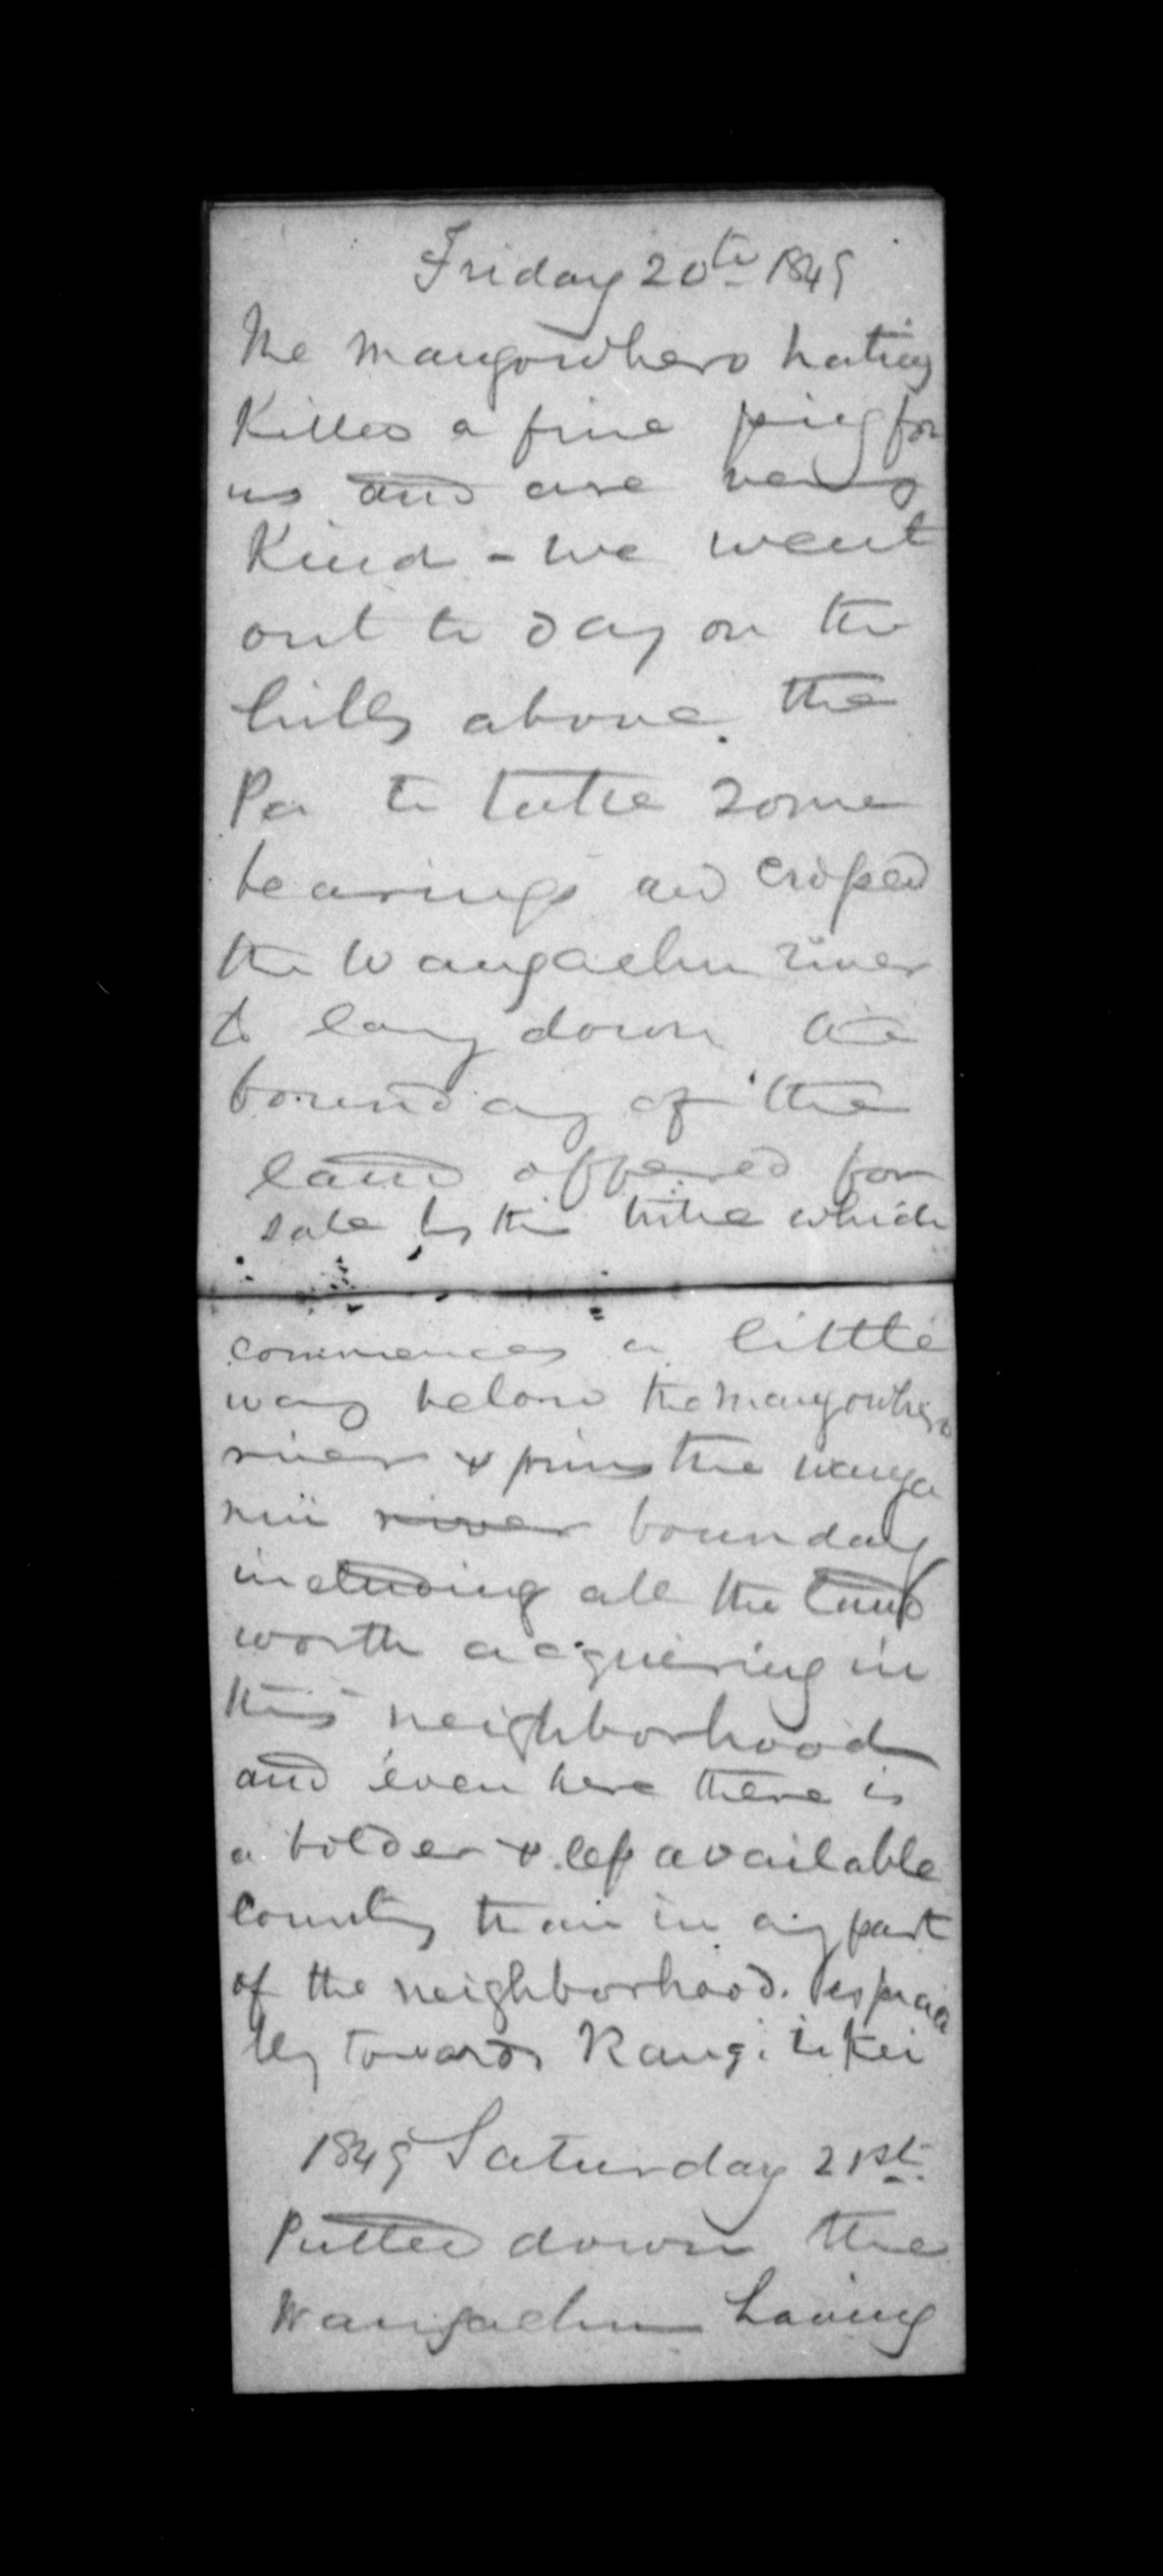 Friday 20th 1849
The Mangowhero natives
Killed a fine pig for
us and are very
Kind - we went
out to day on the
hills above the
Pa to take some
bearings and crossed
the Wangaehu river
to lay down the
boundary of the
land offered for
sale by this tribe which
commences a little
way below the Mangowhero
river & joins the Wanga
nui river boundary
including all the land
worth acquiering in
this neighborhood
and even here there is
a bolder & less available
country than in any part
of the neighborhood. especia
lly towards Rangitikei
1849 Saturday 21st
Pulled down the
Wangaehu having